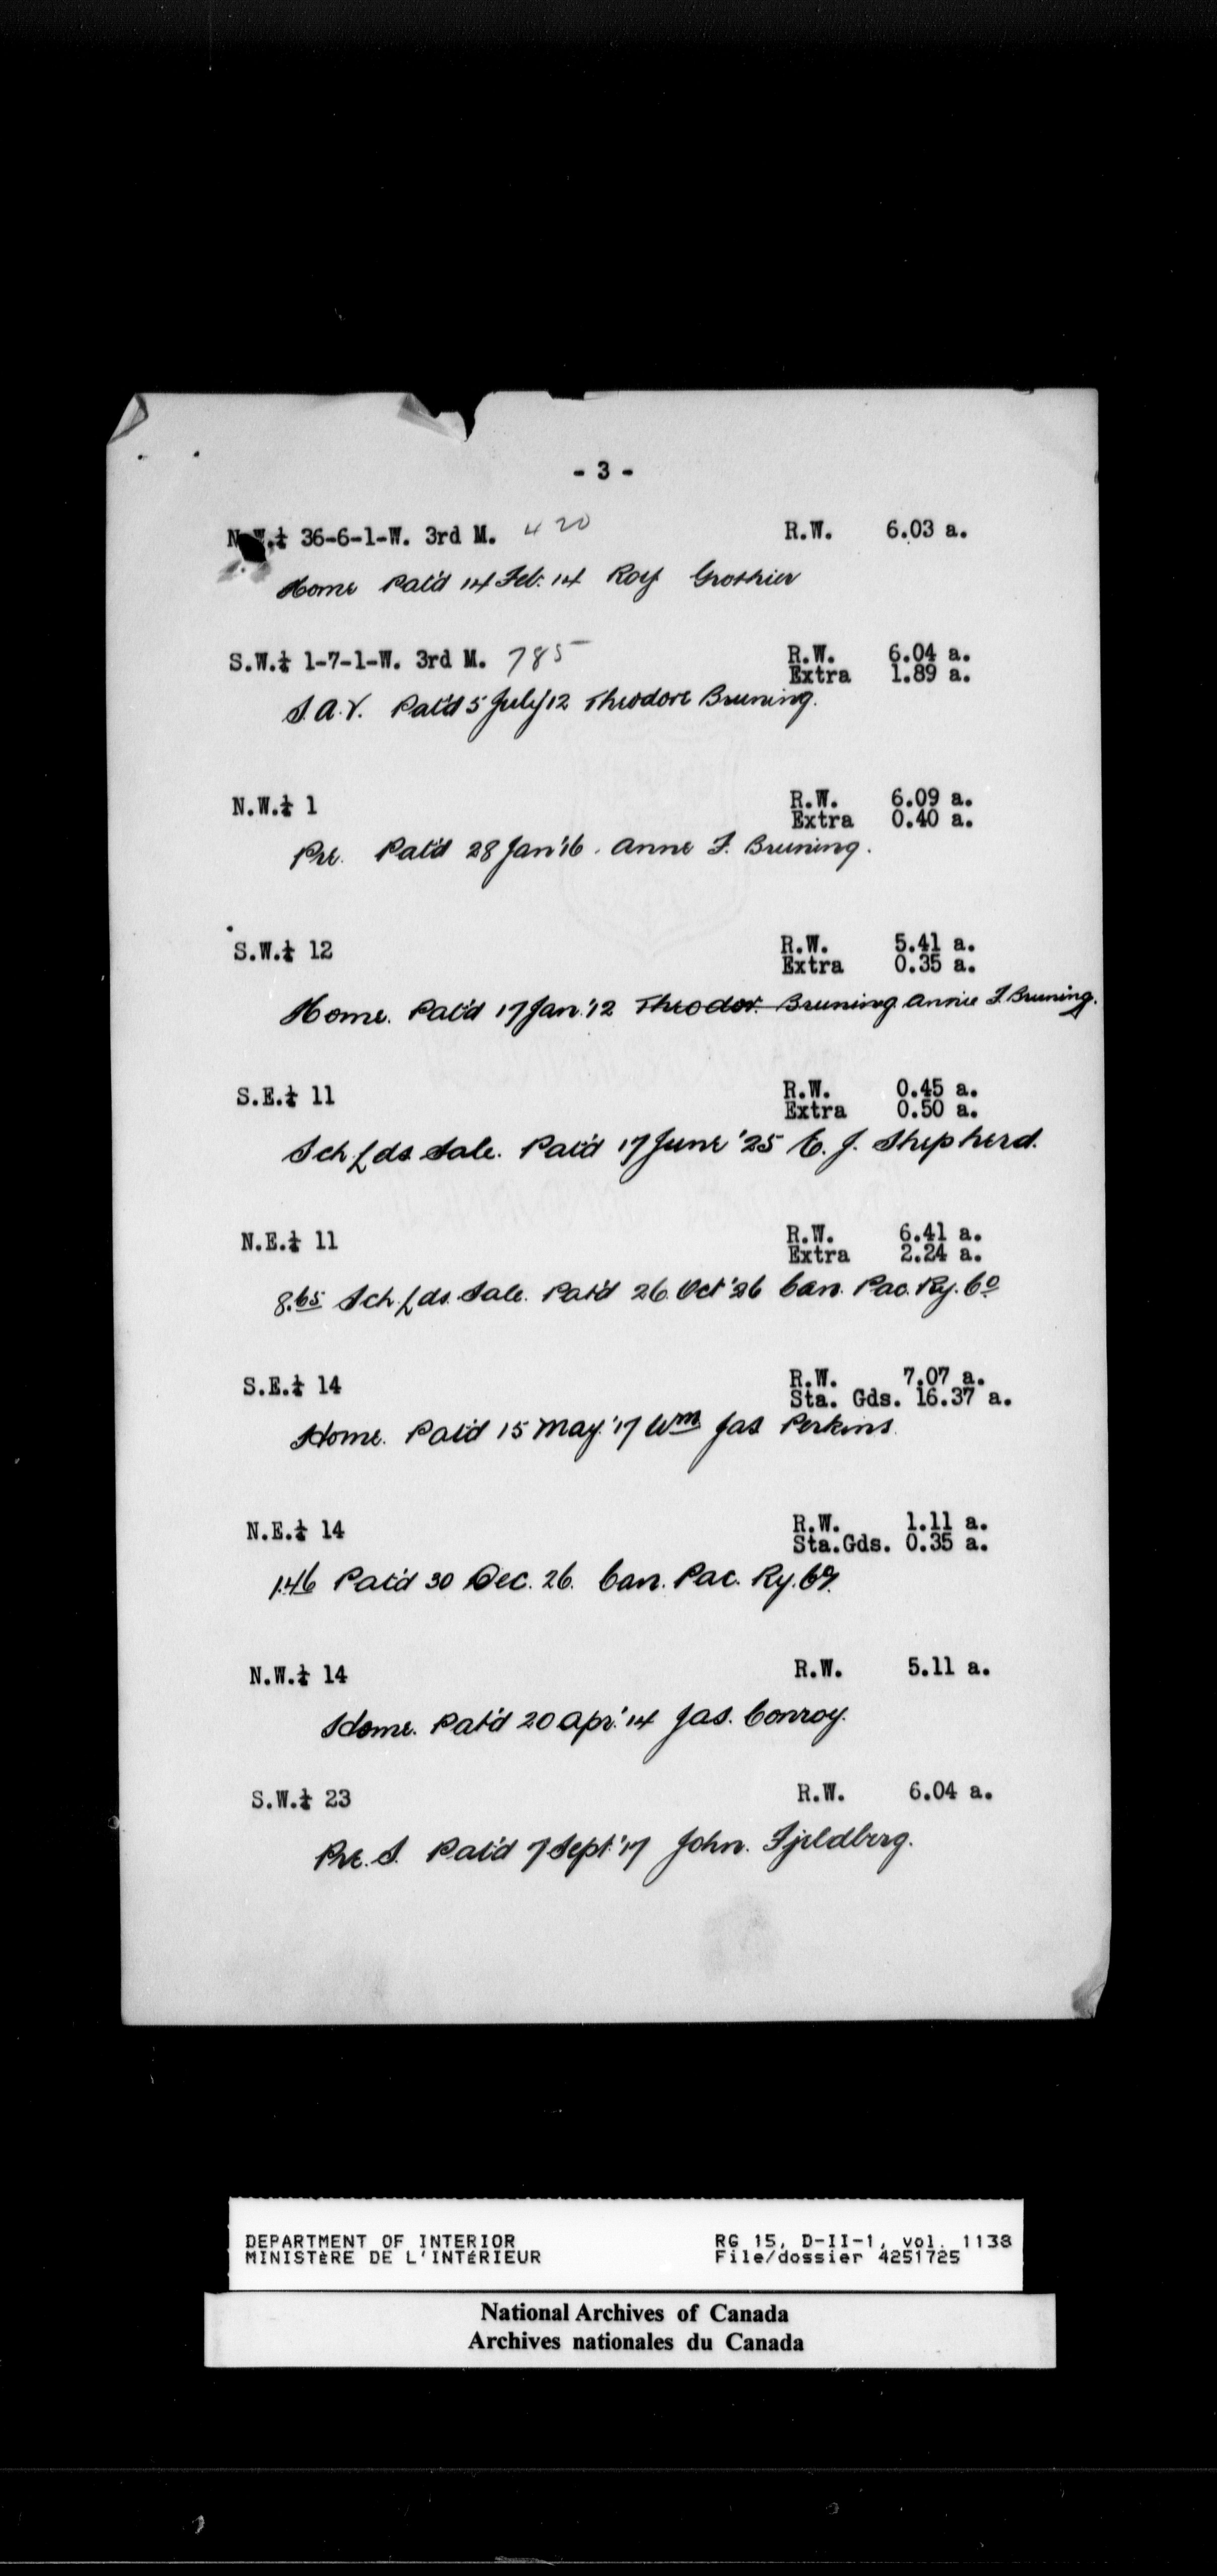 - 3 -
N.W.¼ 36-6-1-W. 3rd M. 420 R.W. 6.03 a.
Home Pat'd 14 Feb. 14 Roy Groshier
S.W.¼ 1-7-1-W. 3rd M. 785 R.W. 6.04 a.
Extra 1.89 a.
S.A.V. Pat'd 5 July 12 Theodore Bruning.
N.W.¼ 1 R.W. 6.09 a.
Extra 0.40 a.
Pre. Pat'd 28 Jan '16. Anne F. Bruning.
S.W.¼ 12 R.W. 5.41 a.
Extra 0.35 a.
Home. Pat'd 17 Jan. '12 Theodor. Bruning Annie F. Bruning.
S.E.¼ 11 R.W. 0.45 a.
Extra 0.50 a.
Sch. Lds. Sale. Pat'd 17 June '25 E. J. Shepherd.
N.E.¼ 11 R.W. 6.41 a.
Extra 2.24 a.
8.65 Sch. Lds. Sale. Pat'd 26 Oct '26 Can. Pac. Ry. Co
S.E.¼ 14 R.W. 7.07 a.
Sta. Gds. 16.37 a.
Home. Pat'd 15 May. '17 Wm Jas Perkins.
N.E.¼ 14 R.W. 1.11 a.
Sta.Gds. 0.35 a.
1.46 Pat'd 30 Dec. 26. Can. Pac. Ry. Co.
N.W.¼ 14 R.W. 5.11 a.
Home. Pat'd 20 Apr. '14 Jas. Conroy.
S.W.¼ 23 R.W. 6.04 a.
Pre. S. Pat'd 7 Sept. '17 John. Fjeldberg.
DEPARTMENT OF INTERIOR RG 15, D-II-1, vol. 1138
MINISTÈRE DE L'INTÉRIEUR File/dossier 4251725
National Archives of Canada
Archives nationales du Canada